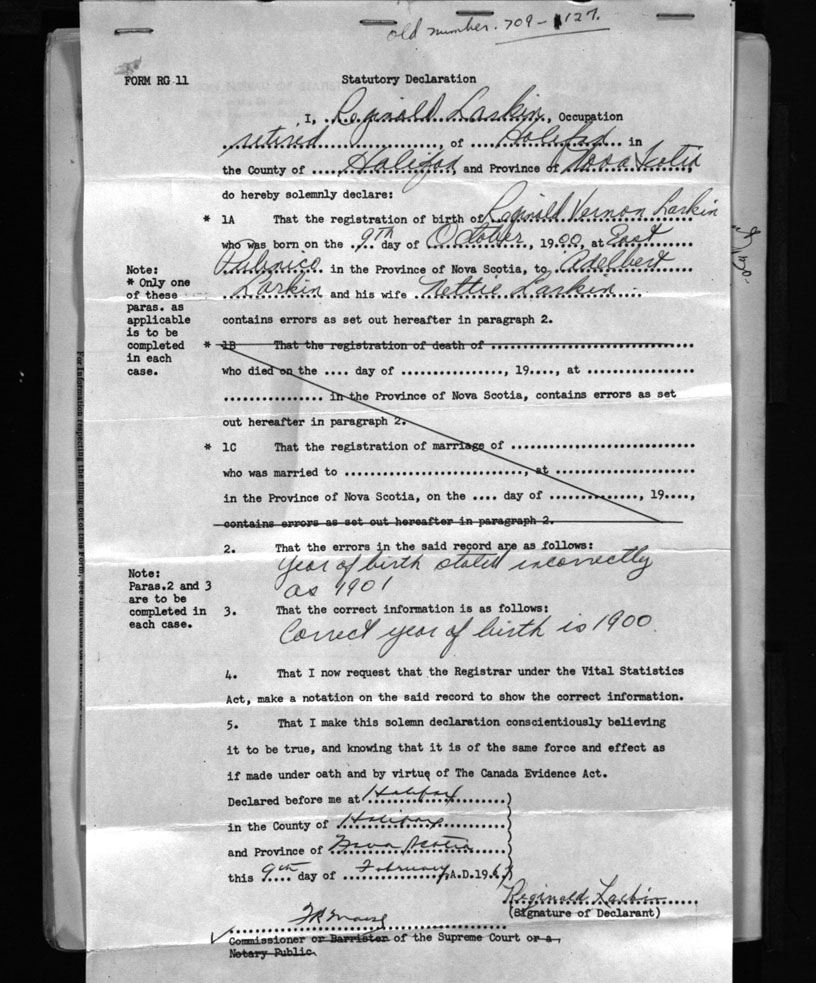 old number. 709 - 127.
FORM RG 11
Statutory Declaration
I, Reginald Larkin, Occupation
retired, of Halifax in
the County of Halifax and Province of Nova Scotia
do hereby solemnly declare:
* 1A That the registration of birth of Reginald Vernon Larkin
who was born on the 9th day of October, 1900, at East
Pubnico in the Province of Nova Scotia, to Adelbert
Larkin and his wife Nettie Larkin
contains errors as set out hereafter in paragraph 2.
Note:
* Only one
of these
paras. as
applicable
is to be
completed
in each
case.
* 1B That the registration of death of ..............................
who died on the .... day of ................, 19...., at ................
................ in the Province of Nova Scotia, contains errors as set
out hereafter in paragraph 2.
* 1C That the registration of marriage of ............................
who was married to ............................, at .....................
in the Province of Nova Scotia, on the .... day of ............., 19....,
contains errors as set out hereafter in paragraph 2.
2. That the errors in the said record are as follows:
Year of birth stated incorrectly
as 1901
Note:
Paras.2 and 3
are to be
completed in
each case.
3. That the correct information is as follows:
Correct year of birth is 1900.
4. That I now request that the Registrar under the Vital Statistics
Act, make a notation on the said record to show the correct information.
5. That I make this solemn declaration conscientiously believing
it to be true, and knowing that it is of the same force and effect as
if made under oath and by virtue of The Canada Evidence Act.
Declared before me at Halifax
in the County of Halifax
and Province of Nova Scotia
this 9th day of February, A.D.19
Reginald Larkin
(Signature of Declarant)
Commissioner or Barrister of the Supreme Court or a
Notary Public.
For Information respecting the filling out of this Form, see